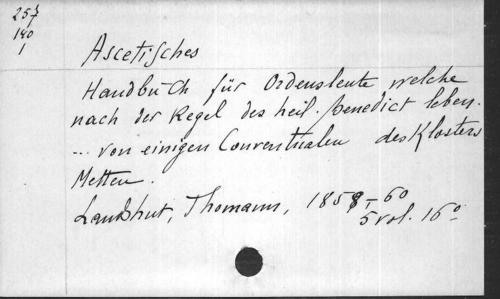 257
140
1
Ascetisches
Handbuch für Ordensleute welche
nach der Regel des heil. Benedict leben.
... von einigen Conventualen des Klosters
Metten.
Landshut, Thomann, 1858-60
5 vol. 16°